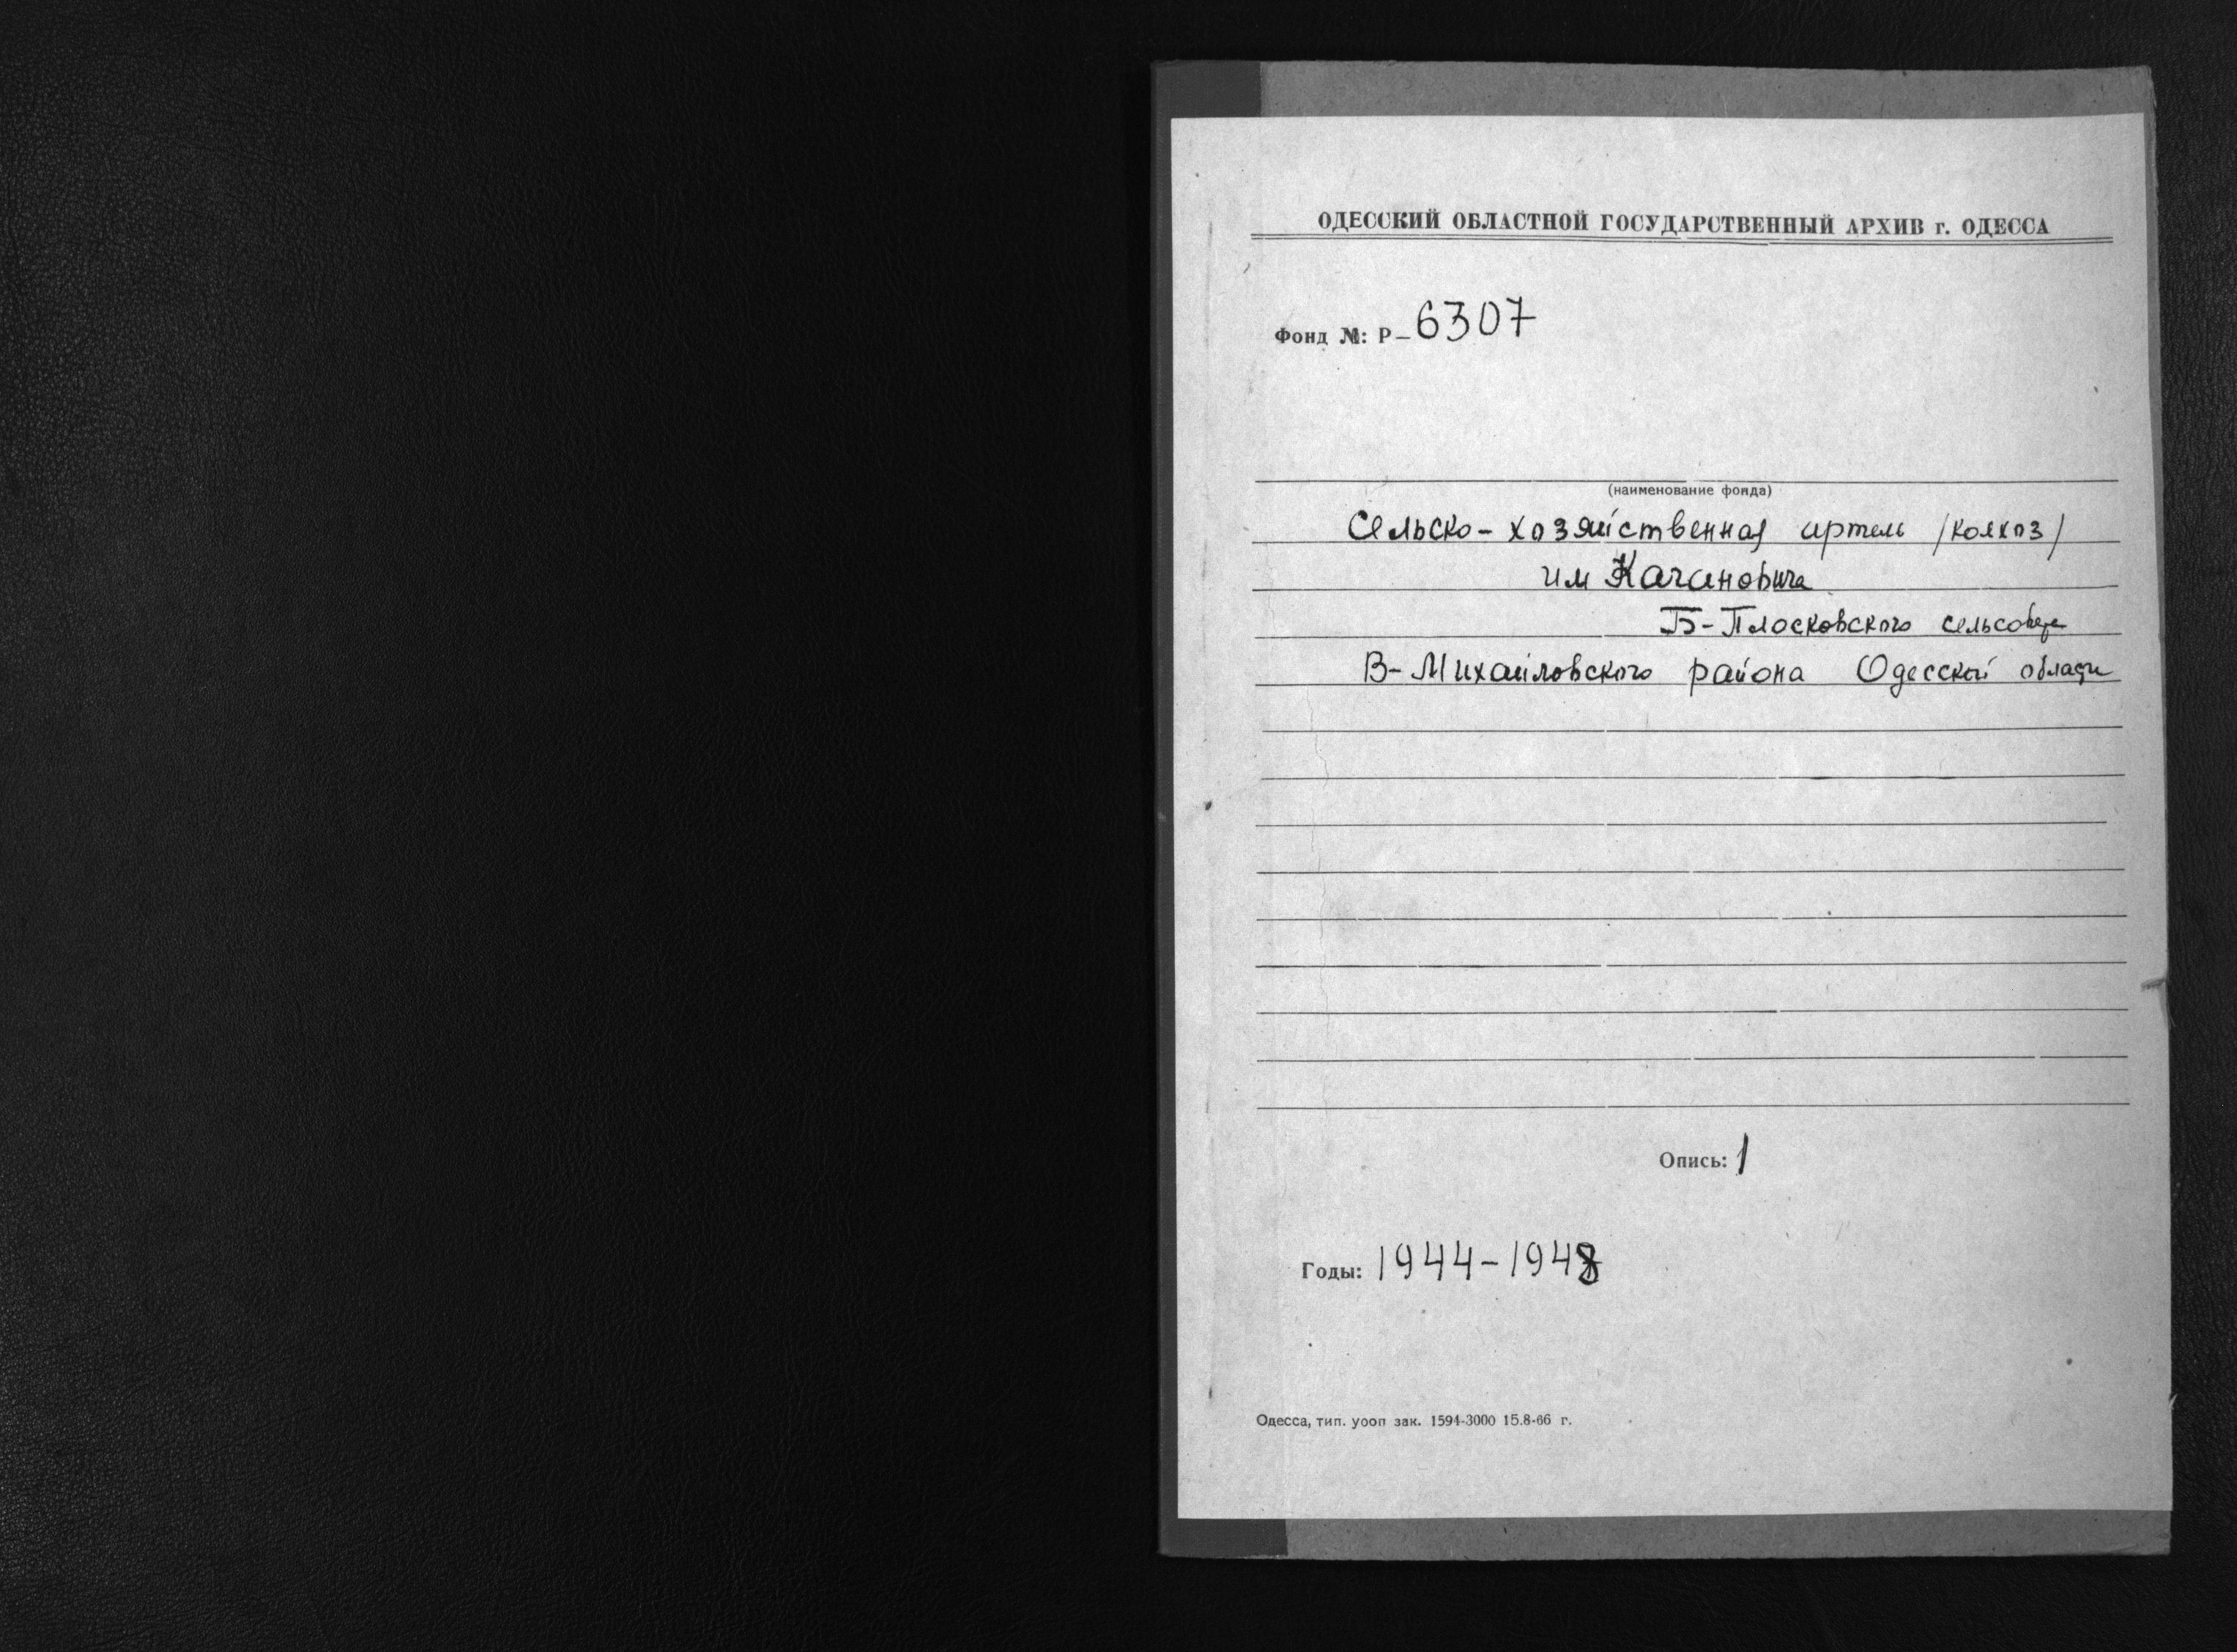 ОДЕССКИЙ ОБЛАСТНОЙ ГОСУДАРСТВЕННЫЙ АРХИВ г. ОДЕССА
Фонд №: Р-6307
(наименование фонда)
Сельско-хозяйственная артель /колхоз/
им Кагановича
Б-Плосковского сельсовета
В-Михайловского района Одесской области
Опись: 1
Годы: 1944-1948
Одесса, тип. уооп зак. 1594-3000 15.8-66 г.